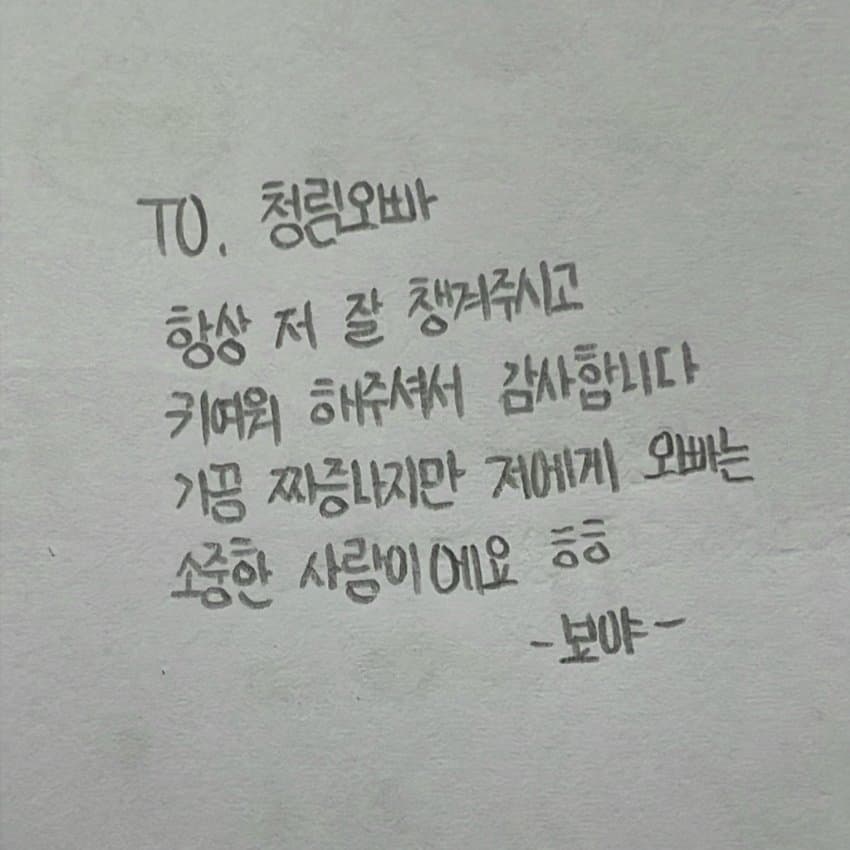 TO. 청림오빠
항상 저 잘 챙겨주시고
귀여워 해주셔서 감사합니다
가끔 짜증나지만 저에게 오빠는
소중한 사람이에요 ㅎㅎ
-보야-